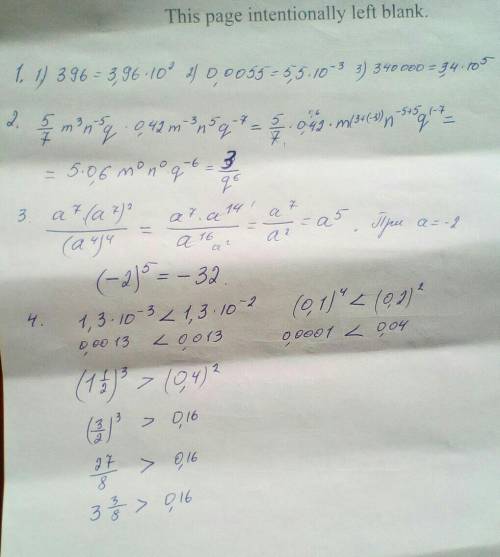 This page intentionally left blank.
1. 1) 396 = 3,96 · 10² 2) 0,0055 = 5,5 · 10⁻³ 3) 340000 = 3,4 · 10⁵
2. 5/7 m³n⁻⁵q · 0,42m⁻³n⁵q⁻⁷ = 5/7 · 0,42 · m⁽³⁺⁽⁻³⁾⁾n⁻⁵⁺⁵q¹⁻⁷ =
= 5 · 0,6 m⁰ n⁰ q⁻⁶ = 3/q⁶
3. a⁷·(a⁷)²/(a⁴)⁴ = a⁷·a¹⁴/a¹⁶ = a⁷/a² = a⁵. При a = -2
(-2)⁵ = -32.
4. 1,3 · 10⁻³ < 1,3 · 10⁻² (0,1)⁴ < (0,2)²
0,0013 < 0,013 0,0001 < 0,04
(1 1/2)³ > (0,4)²
(3/2)³ > 0,16
27/8 > 0,16
3 3/8 > 0,16